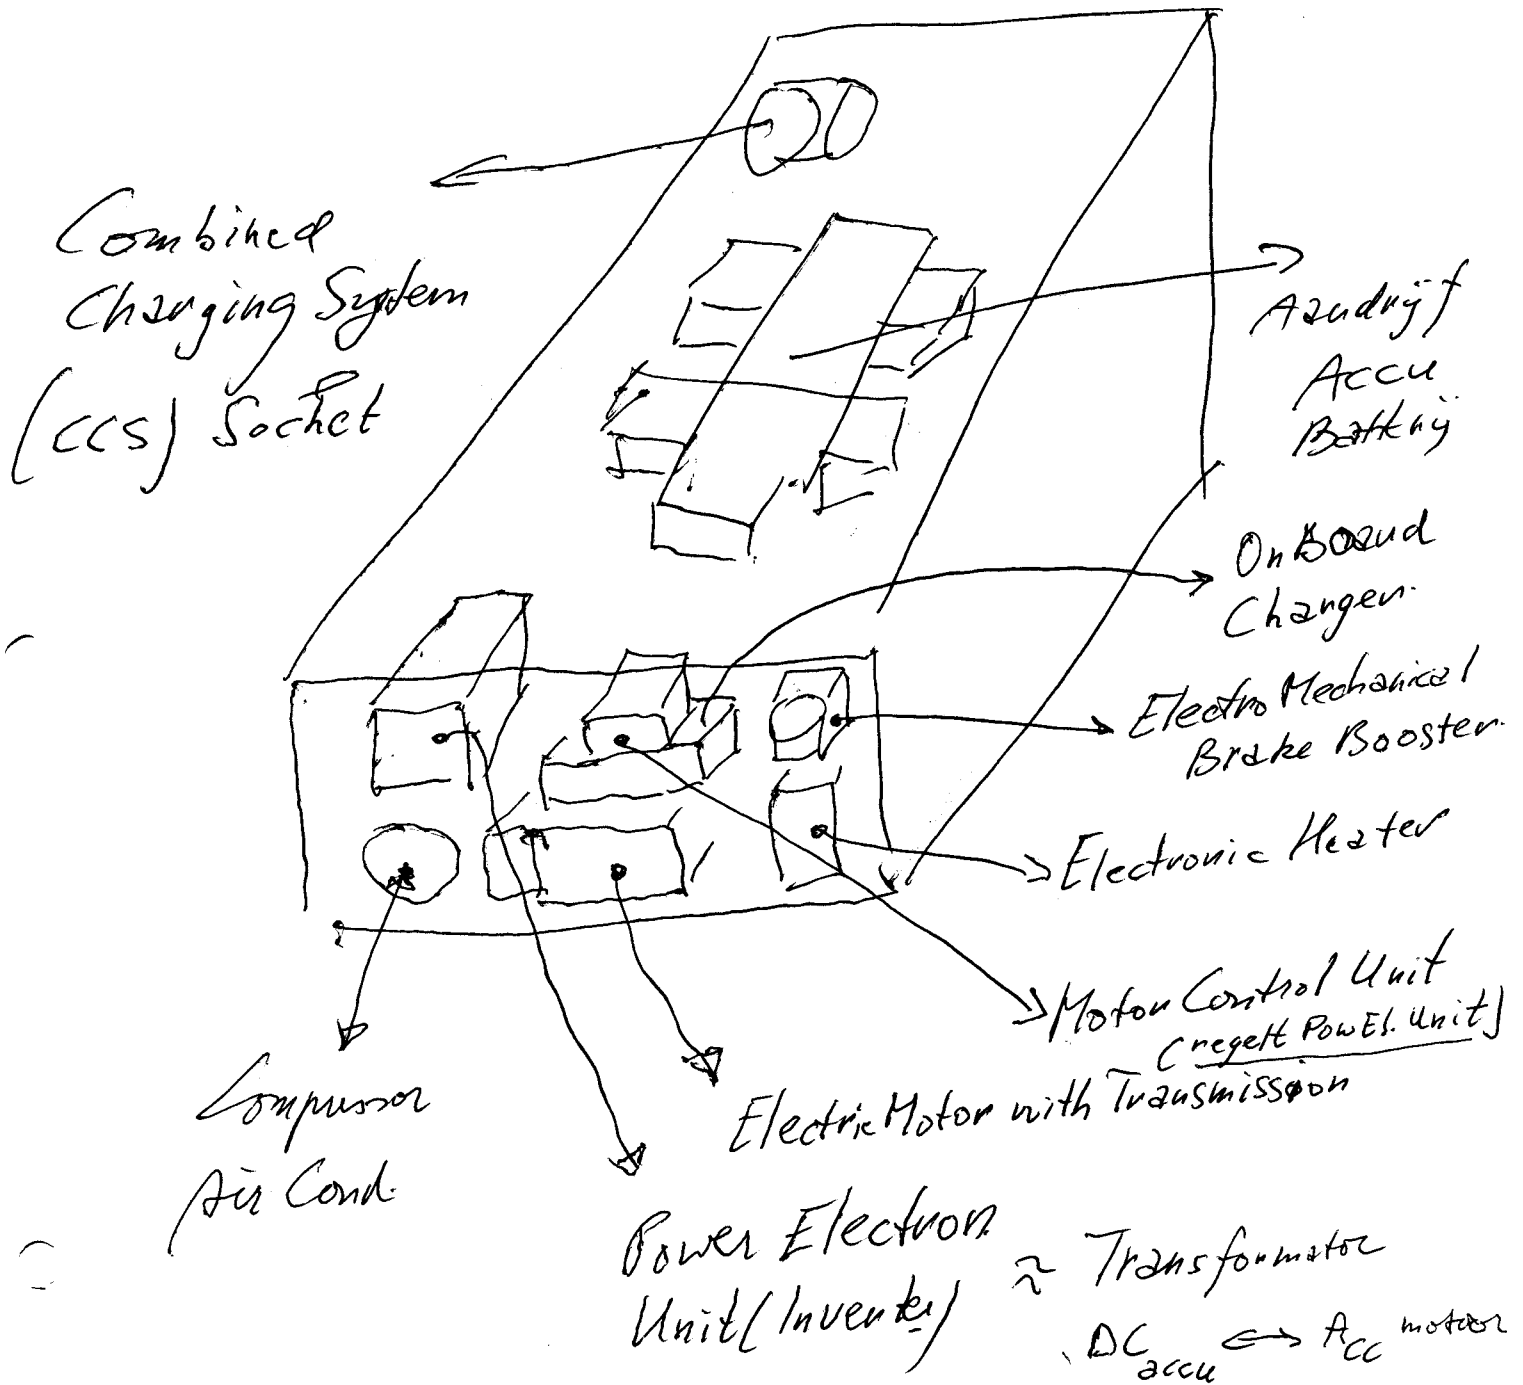 Combined
Charging System
(CCS) Socket
Aandrijf
Accu
Batterij
OnBoard
Charger.
Electro Mechanical
Brake Booster.
Electronic Heater
Motor Control Unit
(regelt Pow El. Unit)
Electric Motor with Transmission
Compressor
Air Cond.
Power Electron
Unit (Inverter)
≈ Transformator
DC accu ↔ ACC motoor